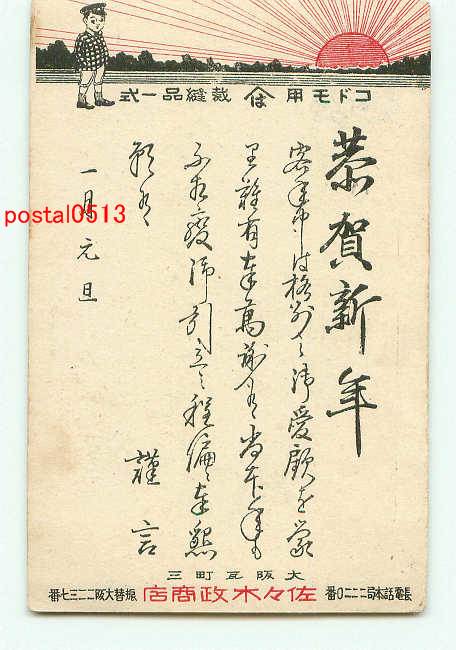 コドモ用 は 裁縫品一式
恭賀新年
客年中は格別之御愛顧を蒙
里難有奉萬謝候尚本年も
不相変御引立之程偏に奉懇
願候
謹言
一月元旦
postal0513
大阪瓦町三
長電話本局二二二〇番
佐々木政商店
振替大阪二二三七番